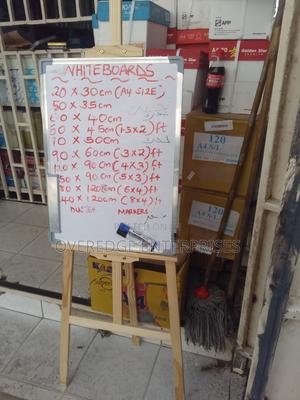 WHITEBOARDS
20 X 30cm (A4 SIZE)
50 X 35cm
60 X 40cm
60 X 45cm (1.5X2)ft
70 X 50cm
90 X 60cm (3X2)ft
120 X 90cm (4X3)ft
150 X 90cm (5X3)ft
180 X 120cm (6X4)ft
240 X 120cm (8X4)ft
MARKERS
OVEREDGE ENTERPRISES
120
A4 S/L
120
A4 N/L
APP
Golden Star